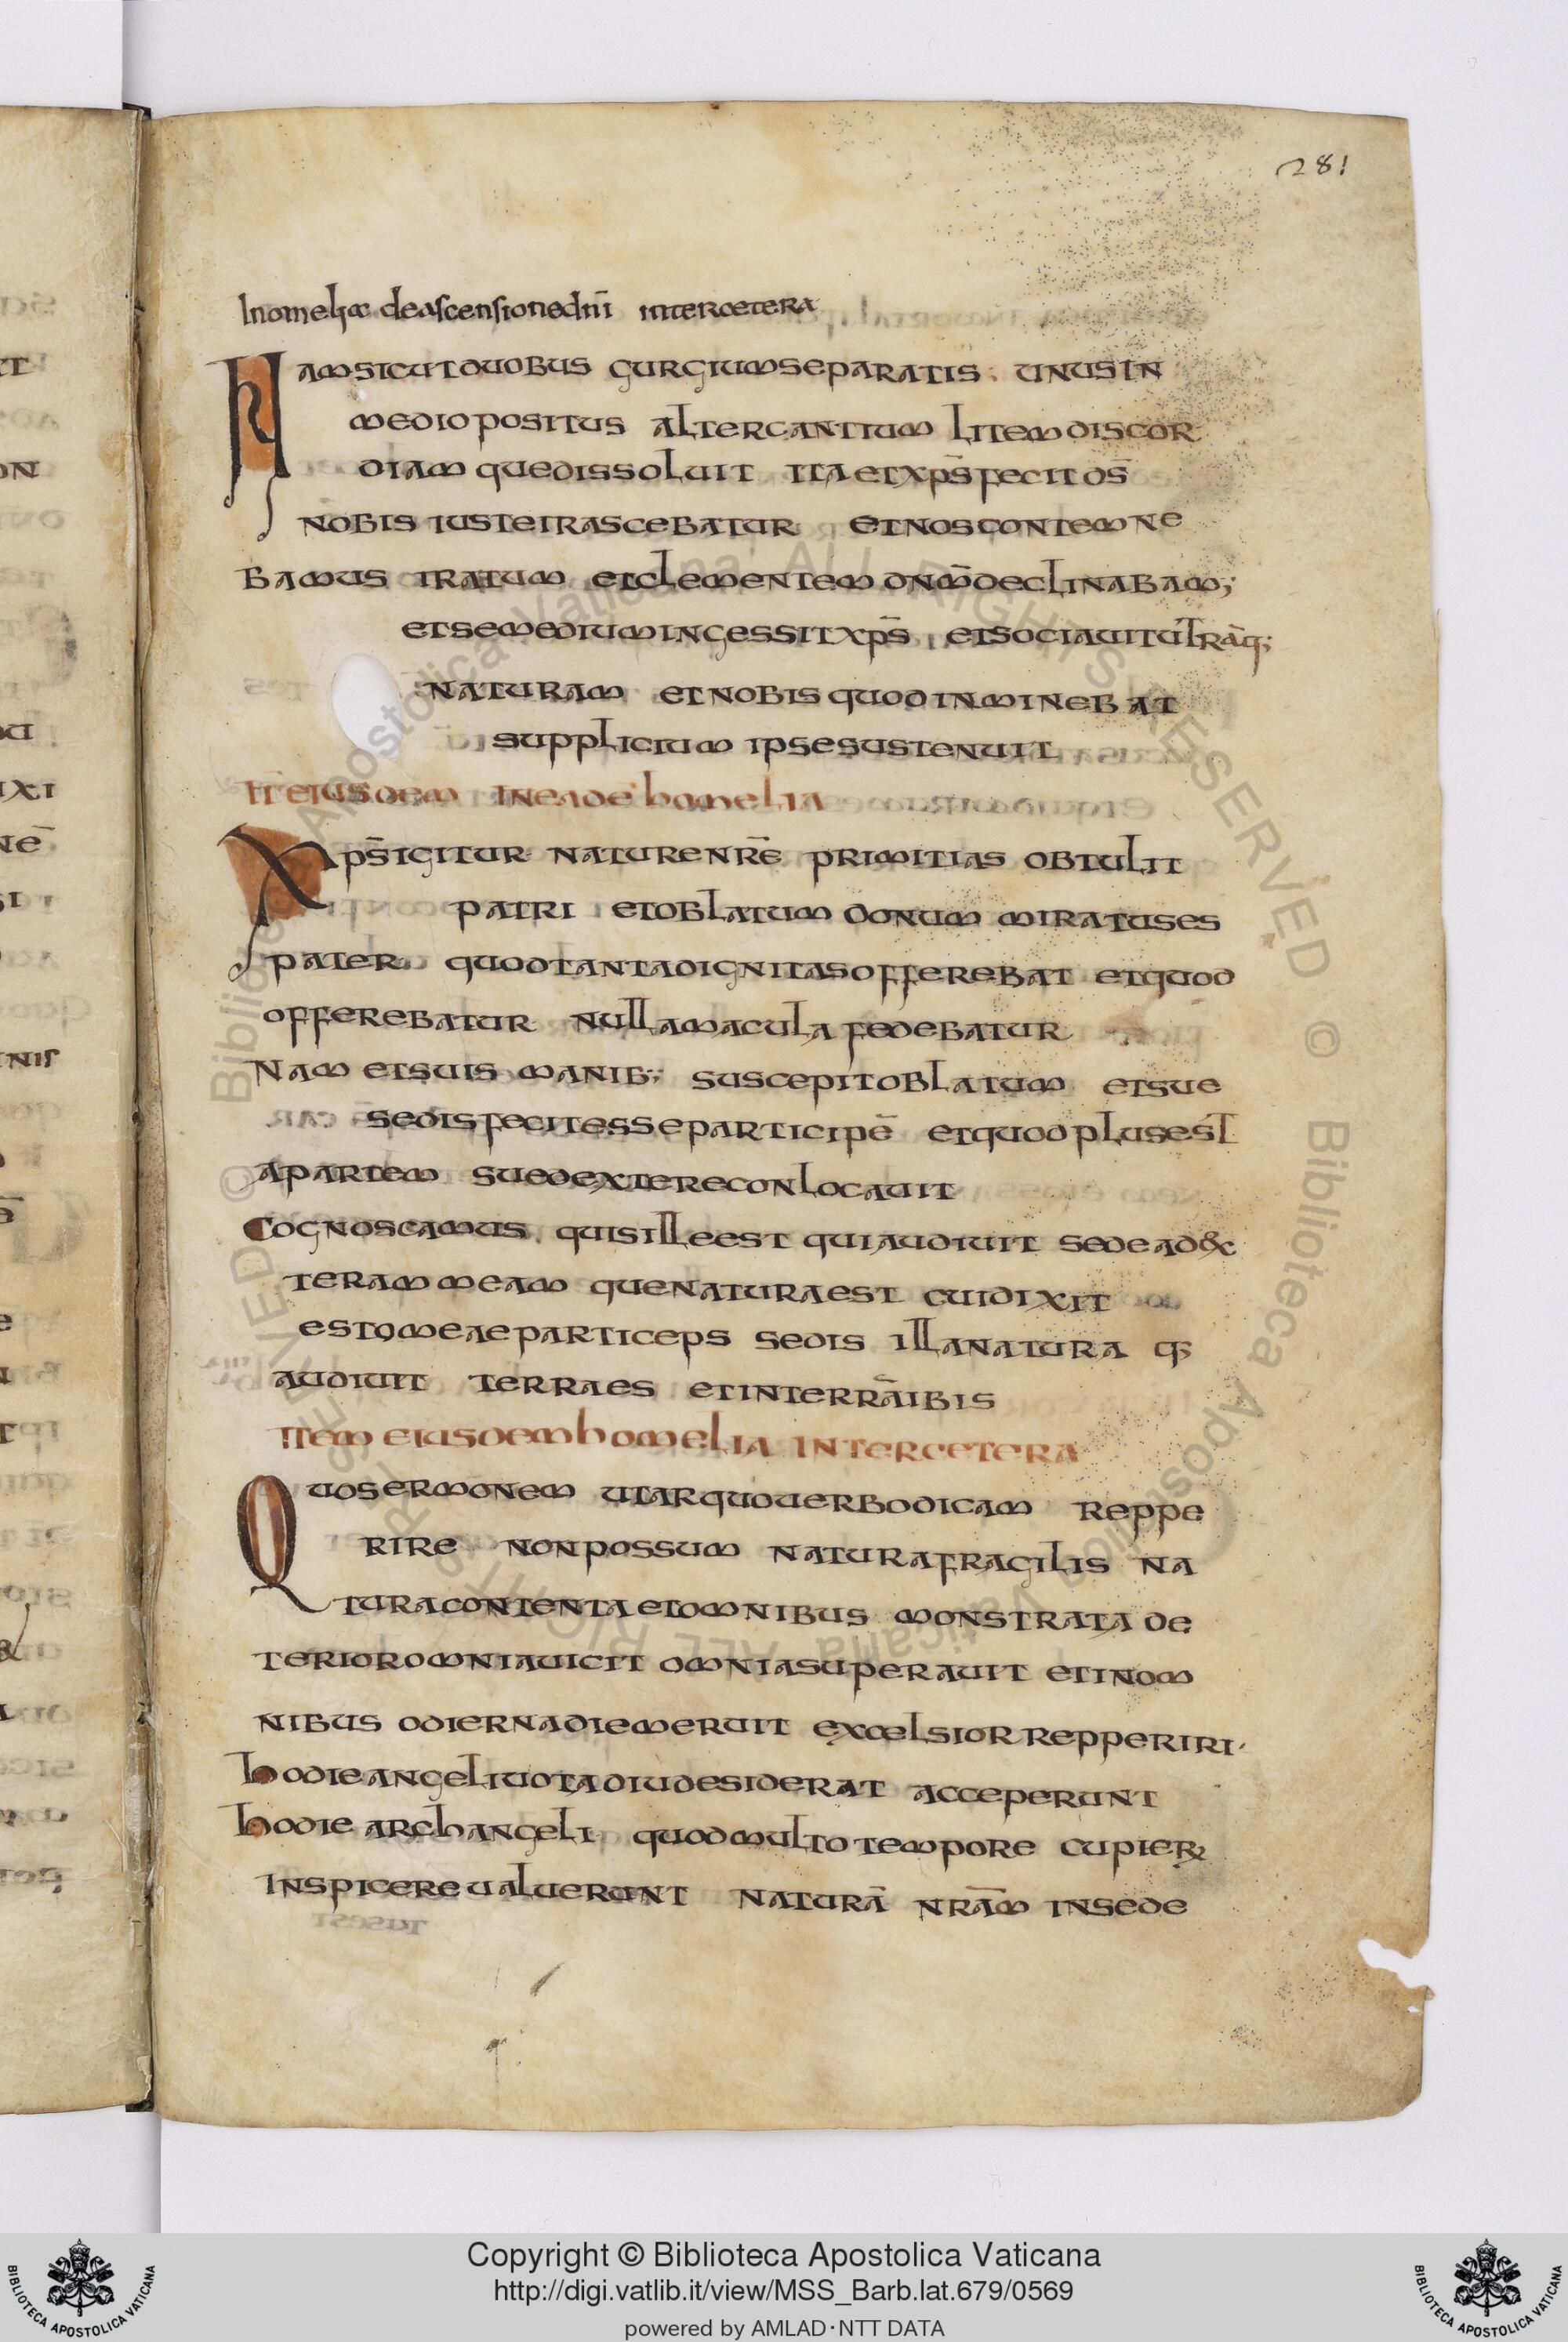 281
In omeliae de ascensione dn̄i inter cetera
Nam sicut duobus gurgium separatis. unus in
medio positus altercantium litem discor
diam que dissoluit ita et xp̄s fecit ds̄
nobis iuste irascebatur et nos contemne
bamus iratum et clementem dnm̄ declinabam;
et se medium ingessit xp̄s et sociauit utrāq;
naturam et nobis quod inminebat
supplicium ipse sustenuit
It̄ eiusdem in eade homelia
Xp̄s igitur nature nrē primitias obtulit
patri et oblatum donum miratus es
pater quod tanta dignitas offerebat et quod
offerebatur nulla macula fedebatur
Nam et suis manib; suscepit oblatum et sue
sedis fecit esse participē et quod plus est
apartem sue dextere conlocauit
Cognoscamus quis ille est qui audiuit sede ad dex
teram meam que natura est cui dixit
esto meae particeps sedis illa natura q;
audiuit terra es et in terrā ibis
Item eiusdem homelia inter cetera
Quo sermonem utar quo uerbo dicam reppe
rire non possum natura fragilis na
tura contenta et omnibus monstrata de
terior omnia uicit omnia superauit et in om
nibus odierna die meruit excelsior repperiri.
hodie angeli uota diu desiderat acceperunt
hodie archangeli quod multo tempore cupier
inspicere ualuerunt naturā nrām in sede
Copyright © Biblioteca Apostolica Vaticana
http://digi.vatlib.it/view/MSS_Barb.lat.679/0569
powered by AMLAD·NTT DATA